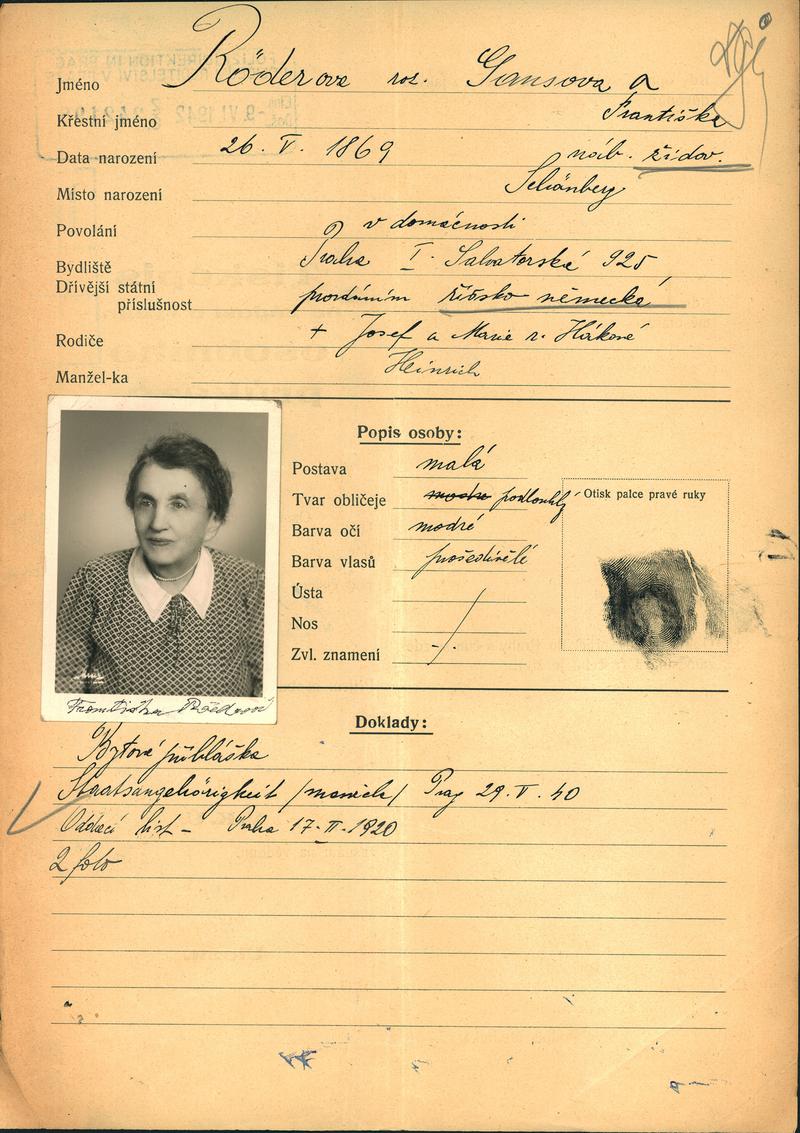 Jméno Röderova roz. Gansova
Křestní jméno Františka
Data narození 26. V. 1869 náb. židov.
Místo narození Schönberg
Povolání v domácnosti
Bydliště Praha I. Salvatorská 925
Dřívější státní
příslušnost říšsko německá
Rodiče + Josef a Marie r. Hákové
Manžel-ka Heinrich
Popis osoby:
Postava malá
Tvar obličeje modré podlouhlý
Barva očí modré
Barva vlasů prošedivělé
Ústa
Nos
Zvl. znamení
Otisk palce pravé ruky
Františka Röderová
Doklady:
Bytová přihláška
Staatsangehörigkeit /manžela/ Prag 29. V. 40
Oddací list - Praha 17-II-1920
2 foto